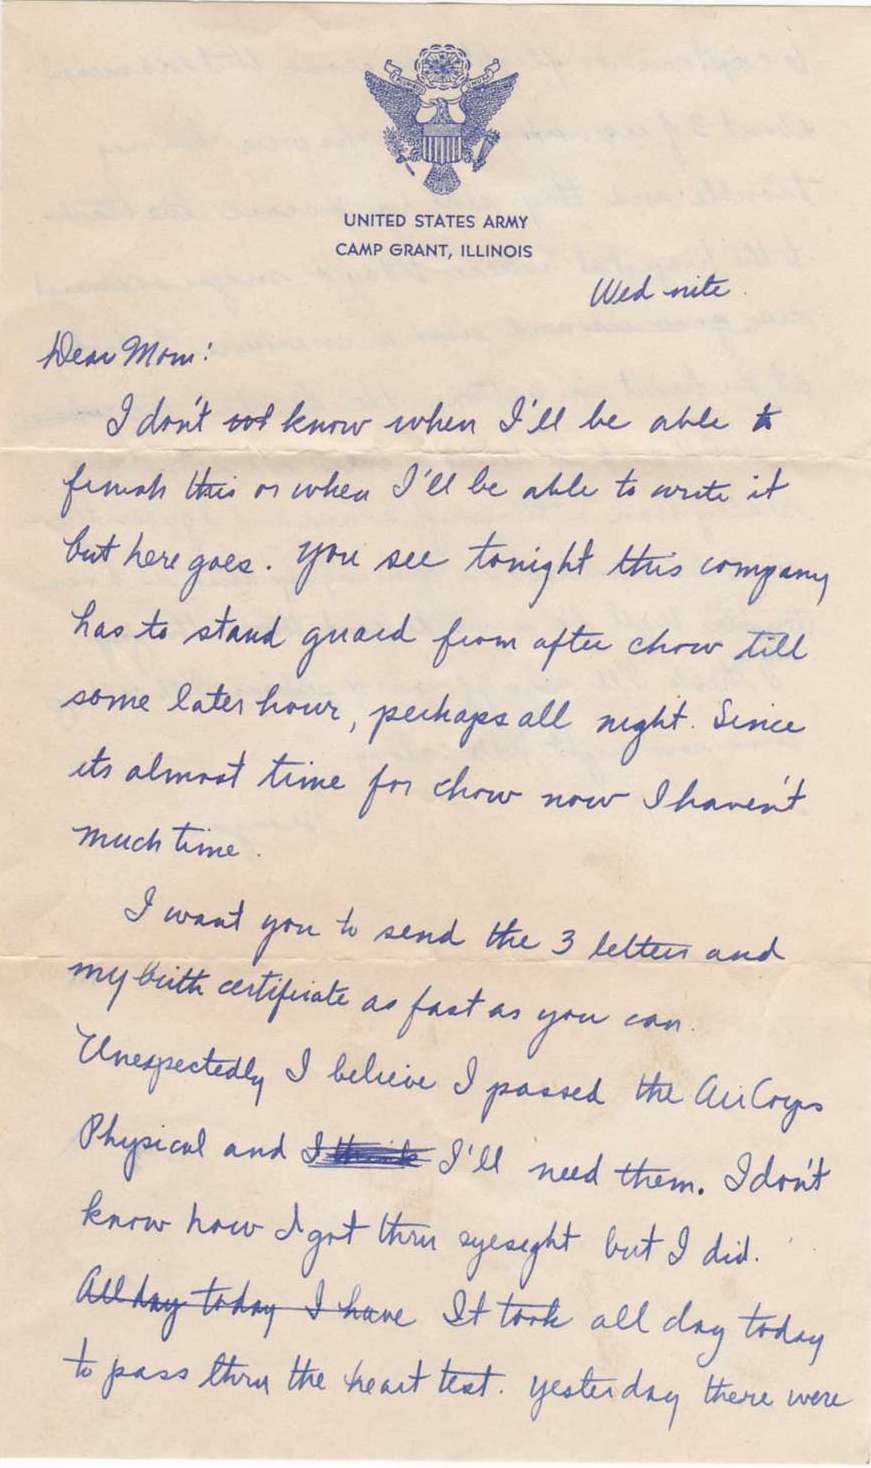 UNITED STATES ARMY
CAMP GRANT, ILLINOIS
Wed nite.
Dear Mom:
I don't not know when I'll be able to
finish this or when I'll be able to write it
but here goes. You see tonight this company
has to stand guard from after chow till
some later hour, perhaps all night. Since
its almost time for chow now I haven't
much time.
I want you to send the 3 letters and
my birth certificate as fast as you can.
Unexpectedly I believe I passed the Air Corps
Physical and I think I'll need them. I don't
know how I got thru eyesight but I did.
All day today I have It took all day today
to pass thru the heart test. Yesterday there were